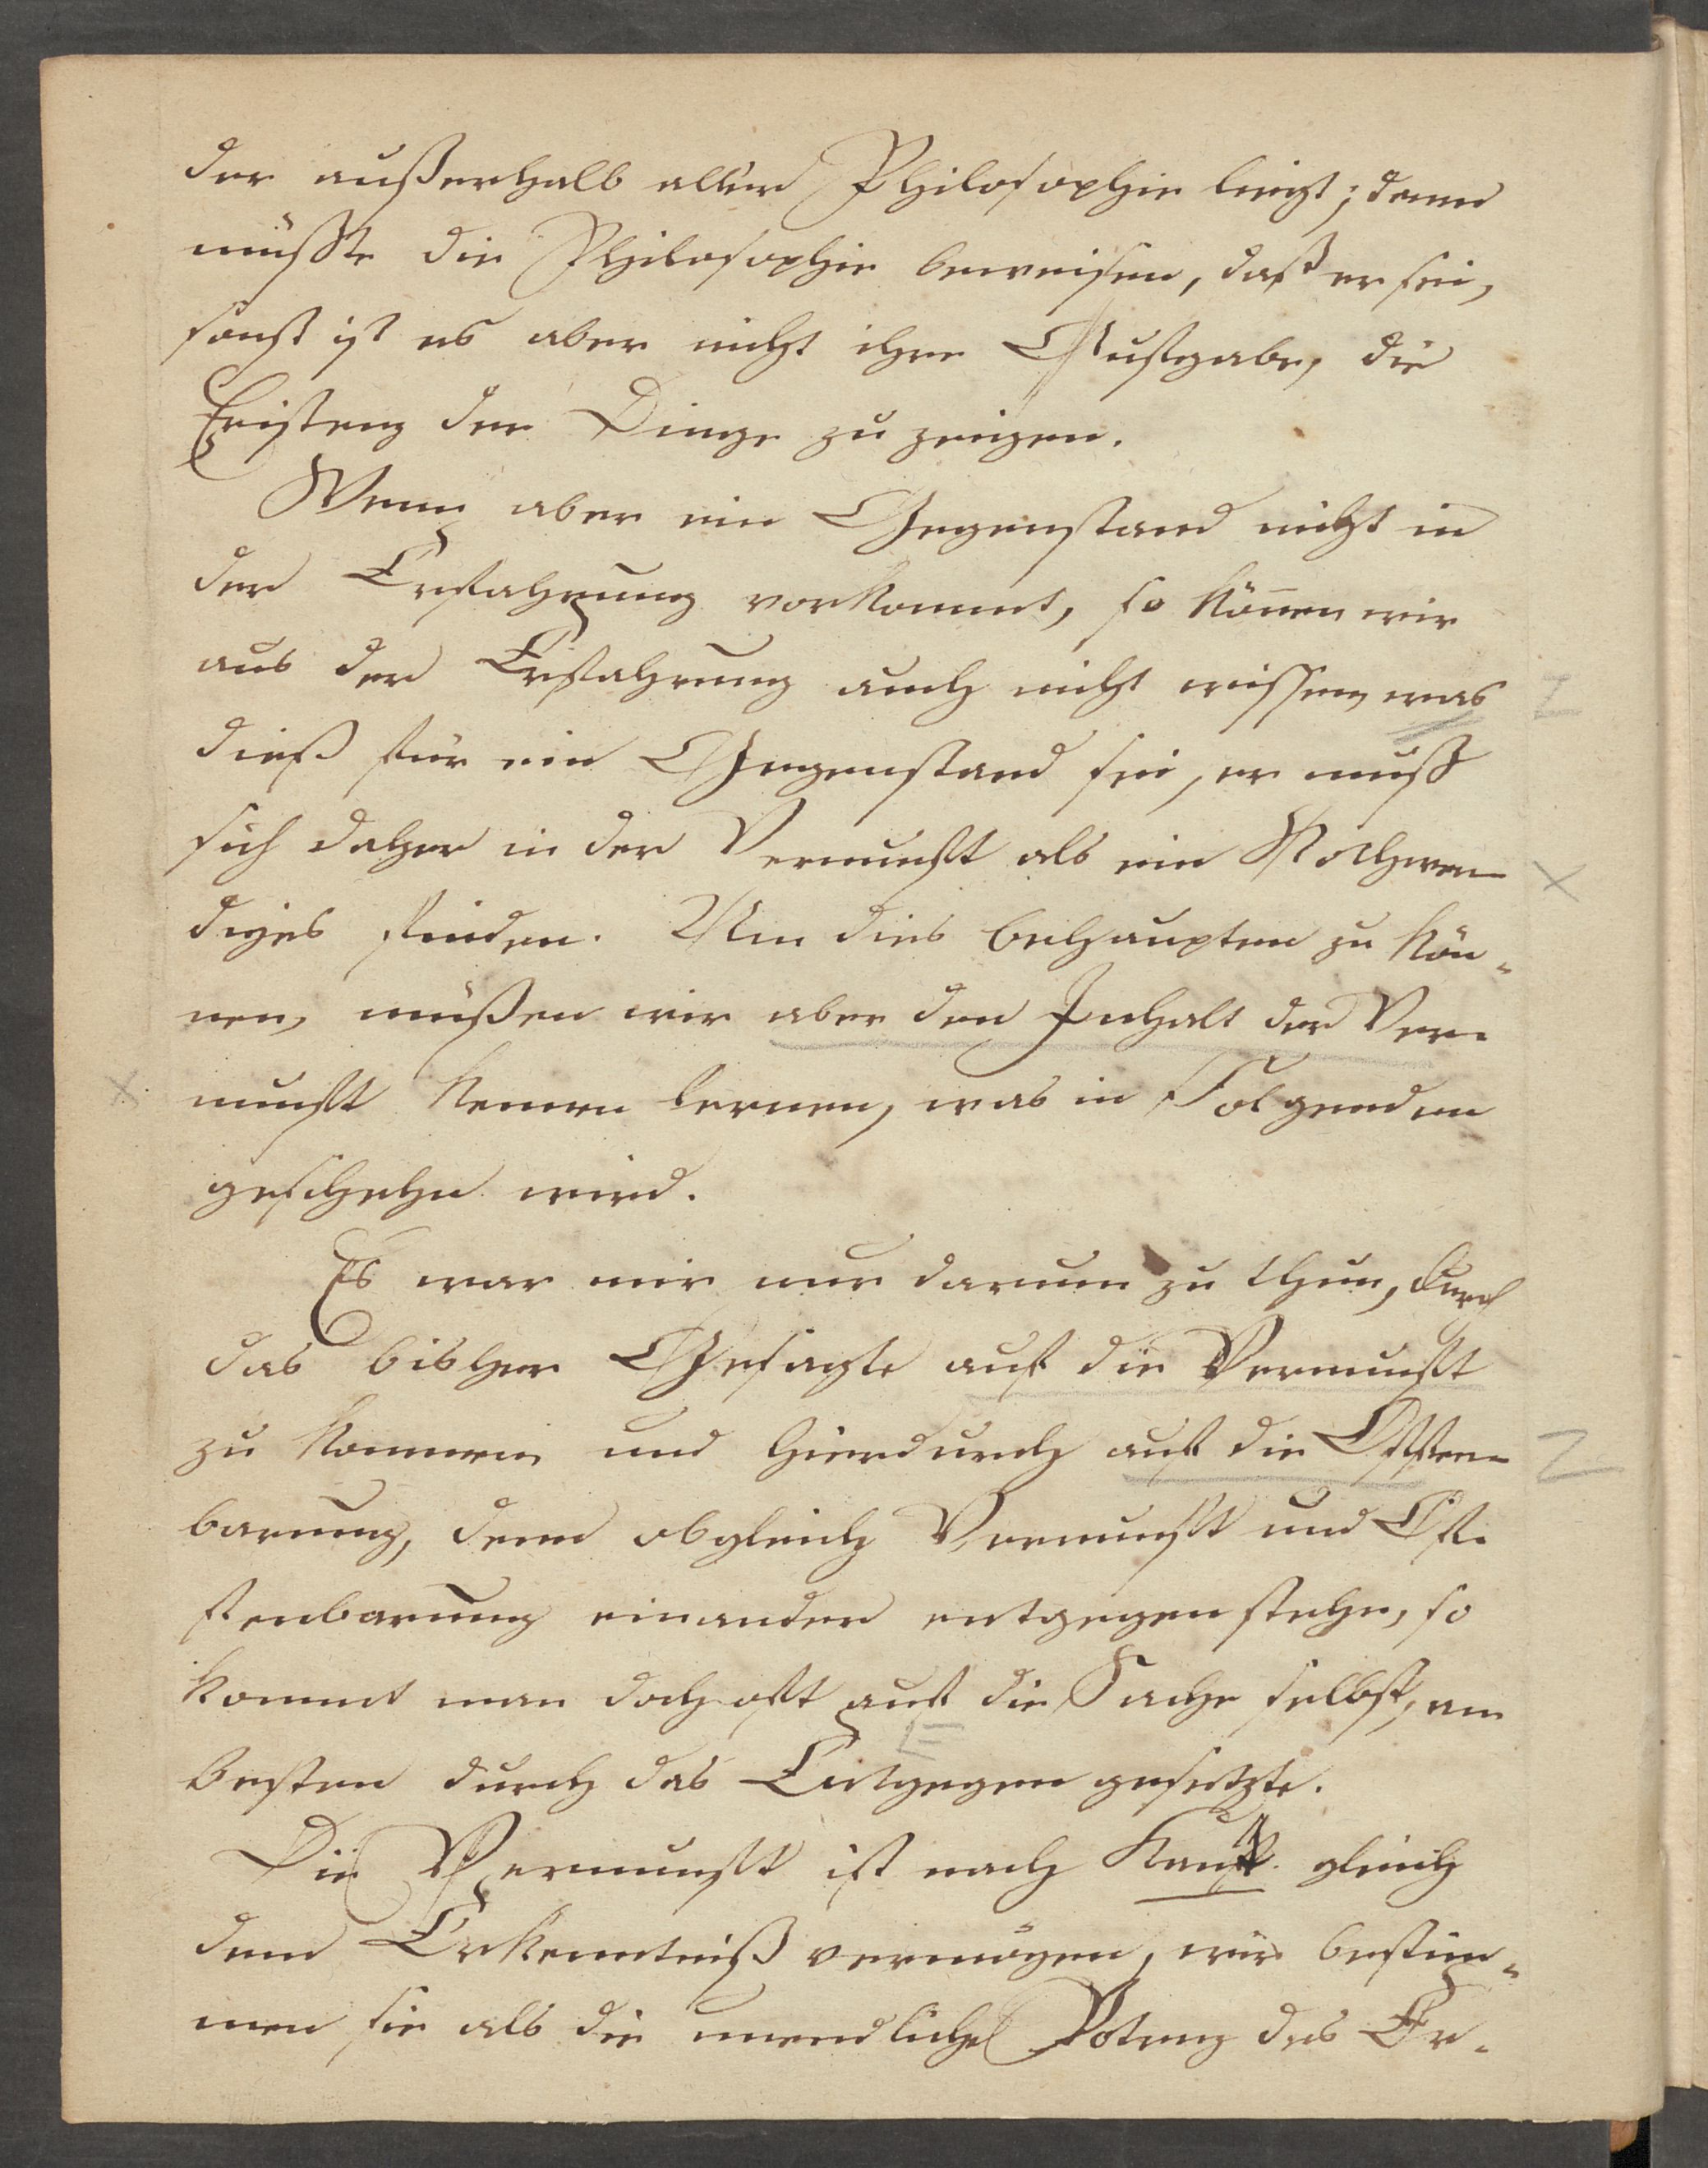 der außerhalb aller Philosophie liegt; dann
müßte die Philosophie beweisen, daß er sei,
sonst ist es aber nicht ihre Aufgabe, die
Existenz der Dinge zu zeigen.
Wenn aber ein Gegenstand nicht in
der Erfahrung vorkommt, so könen wir
aus der Erfahrung auch nicht wissen, was
dieß für ein Gegenstand sei, er muß
sich daher in der Vernunft als ein Nothwen-
diges finden. Um dies behaupten zu kön-
nen, müßen wir aber den Inhalt der Ver-
nunft kennen lernen, was in Folgenden
geschehn wird.
Es war mir nur darum zu thun, durch
das bisher Gesagte auf die Vernunft
zu kommen und hierdurch auf die Offen-
barung, denn obgleich Vernunft und Of-
fenbarung einander entgegen stehn, so
kommt man doch oft auf die Sache selbst, am
besten durch das Entgegengesetzte.
Die Vernunft ist nach Kant gleich
dem Erkenntnißvermögen, wir bestim-
men sie als die unendliche Potenz des Er-